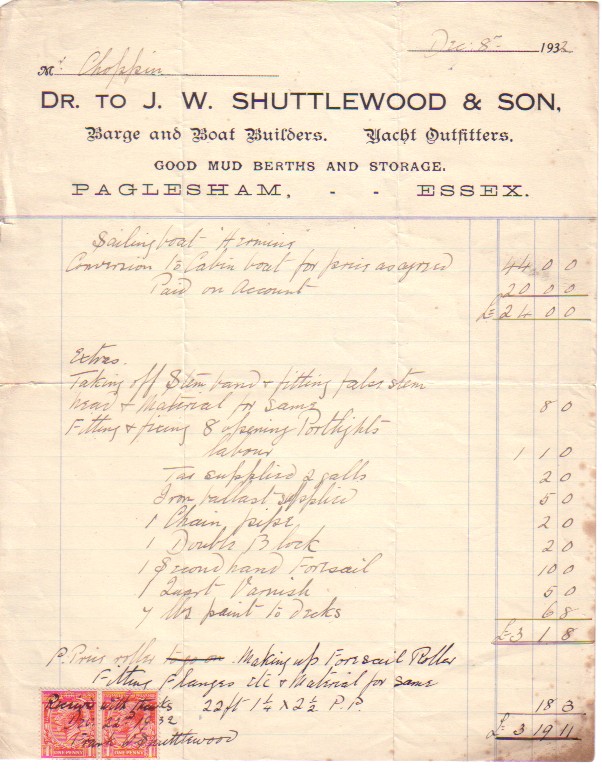 Dec. 8th 1932
Mr. Choppin
DR. TO J. W. SHUTTLEWOOD & SON,
Barge and Boat Builders. Yacht Outfitters.
GOOD MUD BERTHS AND STORAGE.
PAGLESHAM, - - ESSEX.
Sailing boat "Hermine"
Conversion to Cabin boat for price as agreed 44 0 0
Paid on Account 20 0 0
£ 24 0 0
Extras.
Taking off Stem band & fitting false stem
head & Material for Same 8 0
Fitting & fixing 8 opening Portlights
labour 1 1 0
Tar supplied 2 galls 2 0
Iron ballast supplied 5 0
1 Chain pipe 2 0
1 Double Block 2 0
1 Second hand Foresail 10 0
1 Quart Varnish 5 0
7 lbs paint to decks 6 8
£ 3 1 8
P. Pine roller Making up Foresail Roller
Fitting Flanges etc & Material for same
22ft 1¼ x 2½ P.P. 18 3
£ 3 19 11
Receivd with thanks
Dec 22nd 1932
Frank Shuttlewood
ONE PENNY ONE PENNY